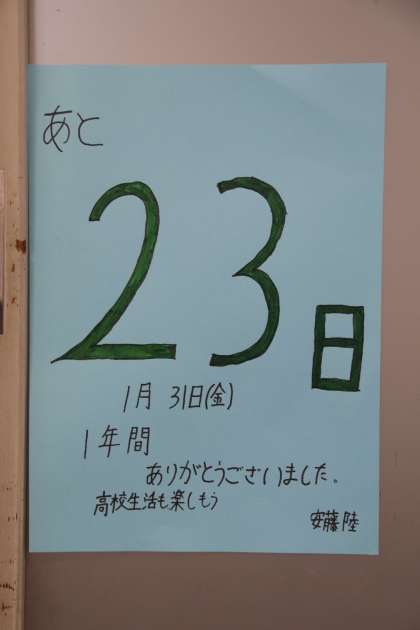 あと
23日
1月 31日(金)
1年間
ありがとうございました。
高校生活も楽しもう
安藤 陸